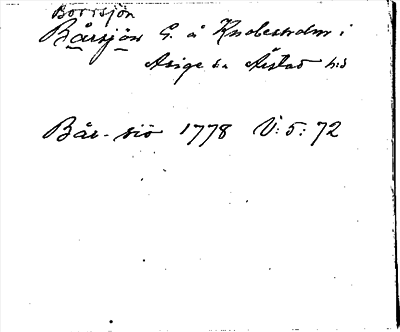 Borrsjön
Bårsjön G. å Knobesholm i
Asige sn Årstad hd
Bår-siö 1778 V:5:72